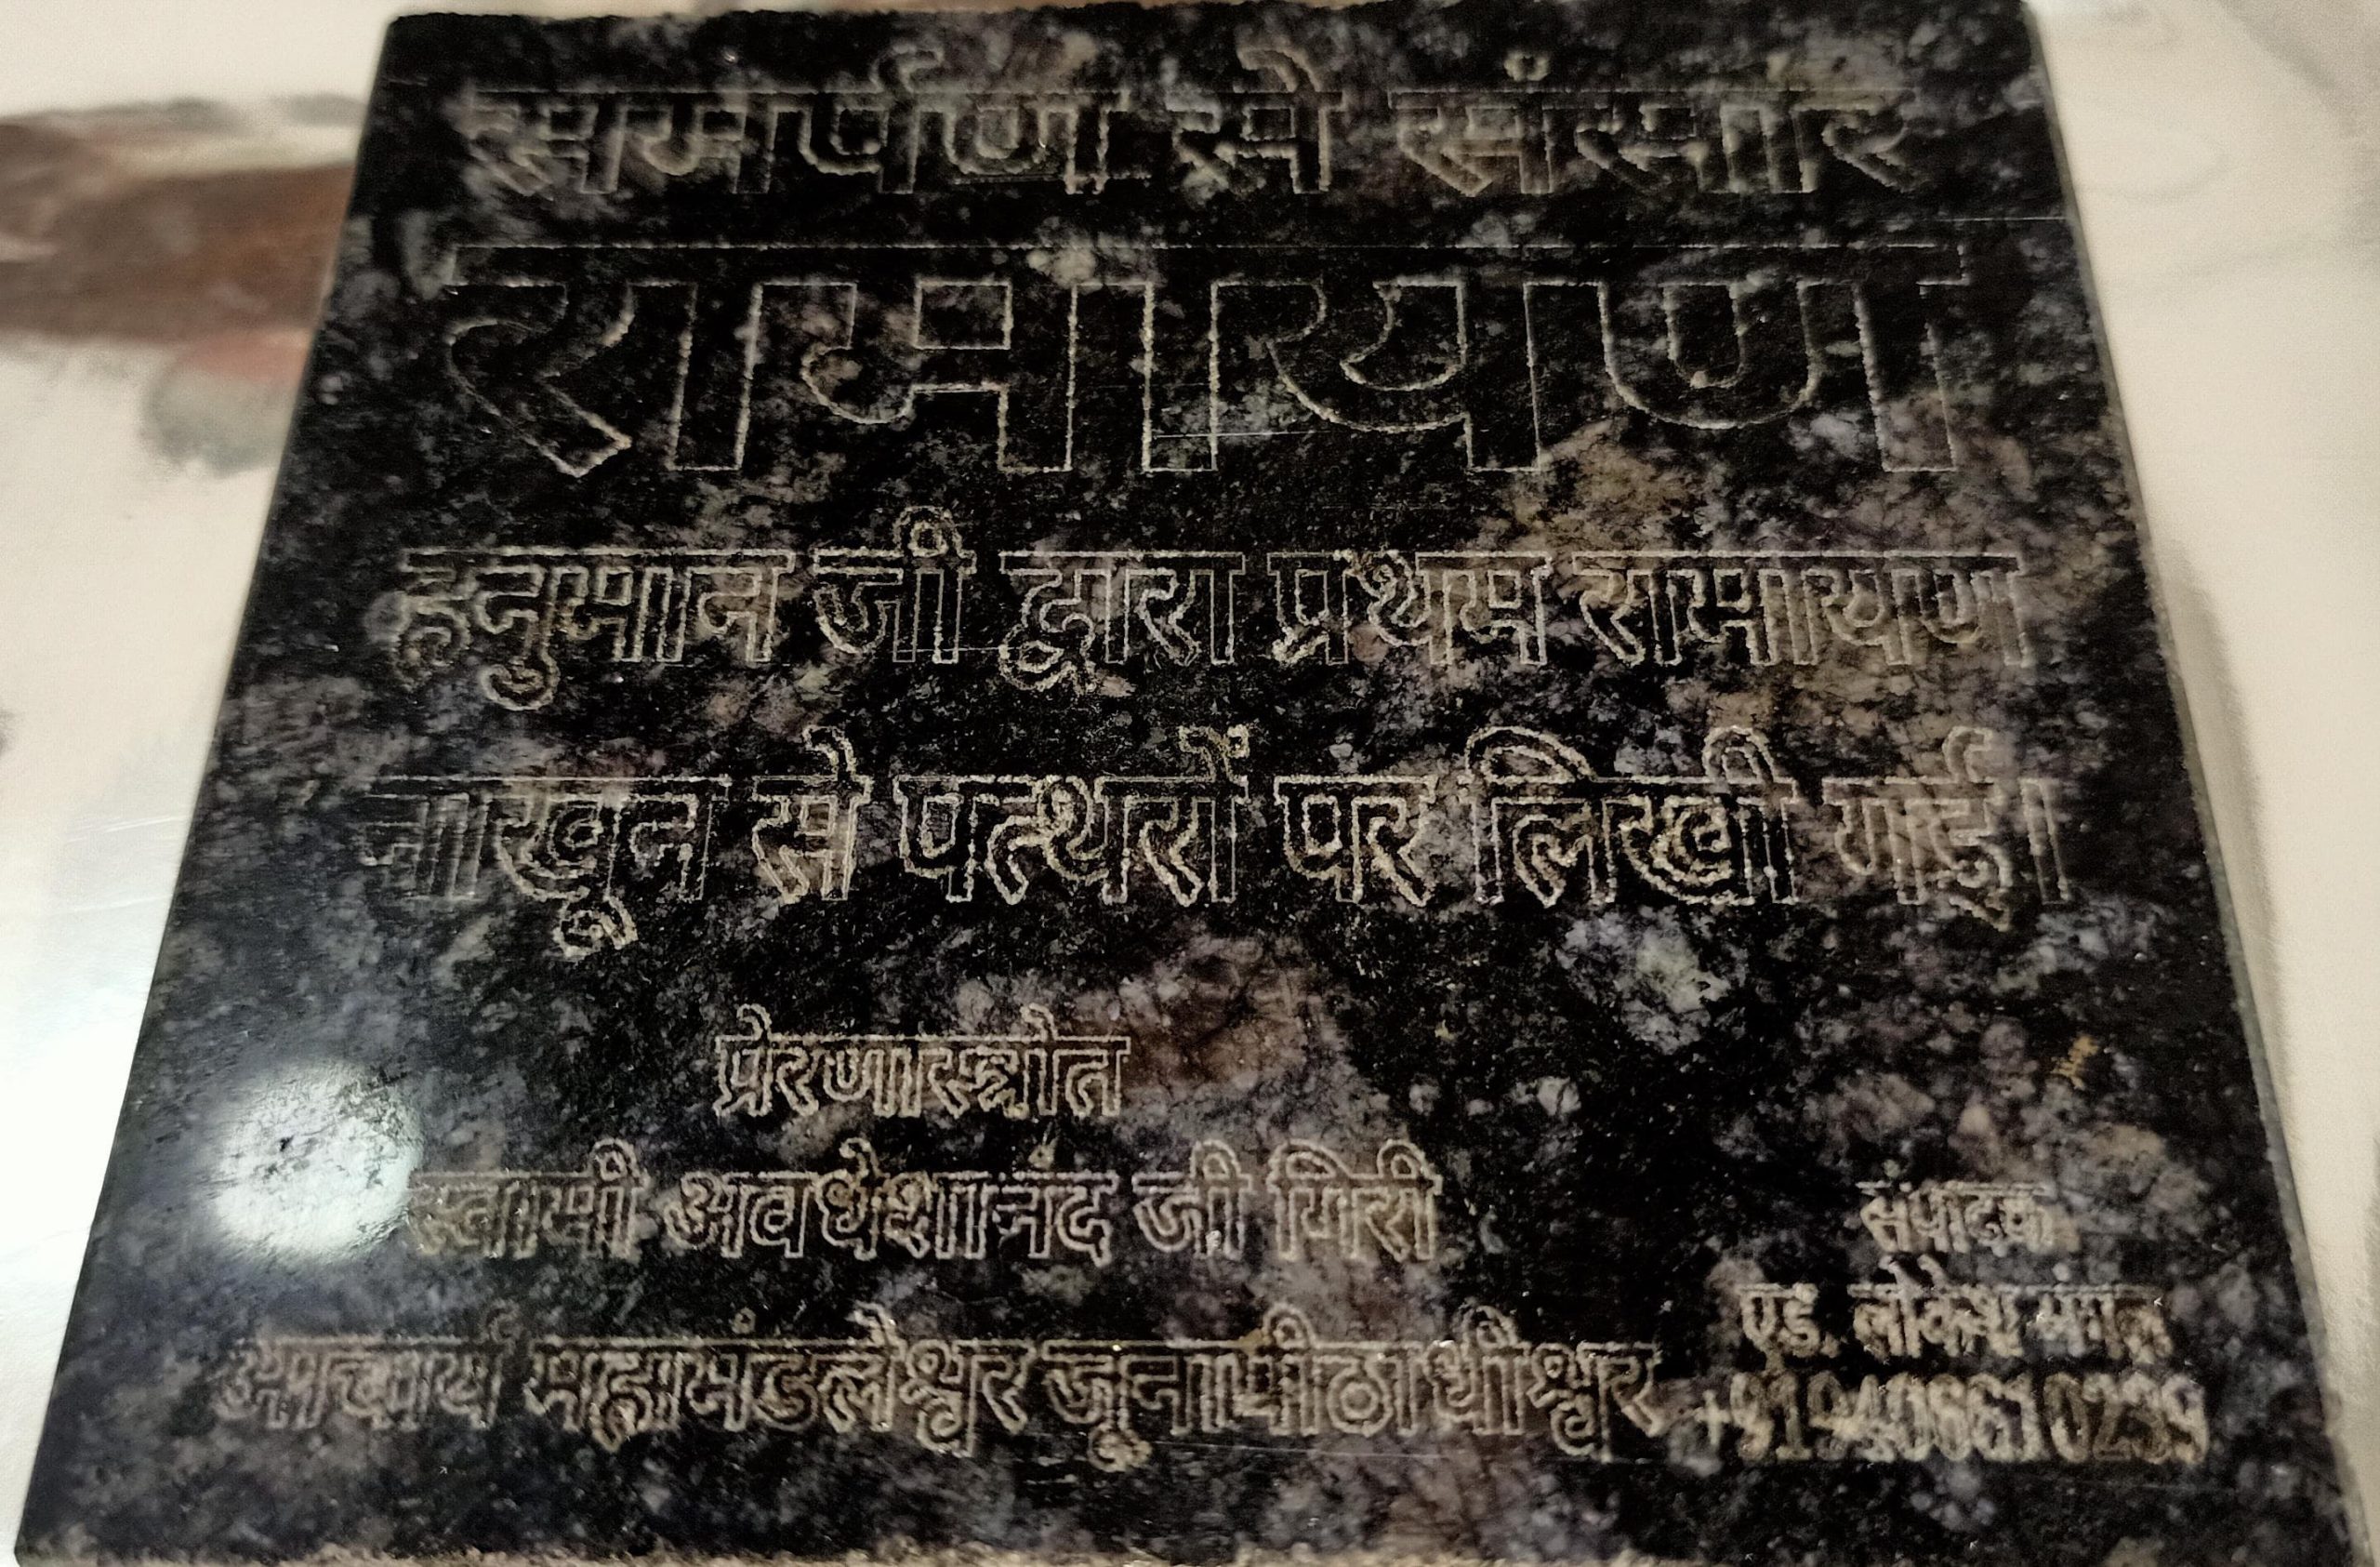 समर्पण से संसार
रामायण
हनुमान जी द्वारा प्रथम रामायण
नाखून से पत्थरों पर लिखी गई।
प्रेरणास्त्रोत
स्वामी अवधेशानंद जी गिरी
आचार्य महामंडलेश्वर जूनापीठाधीश्वर
संपादक
एड. लोकेश मंगल